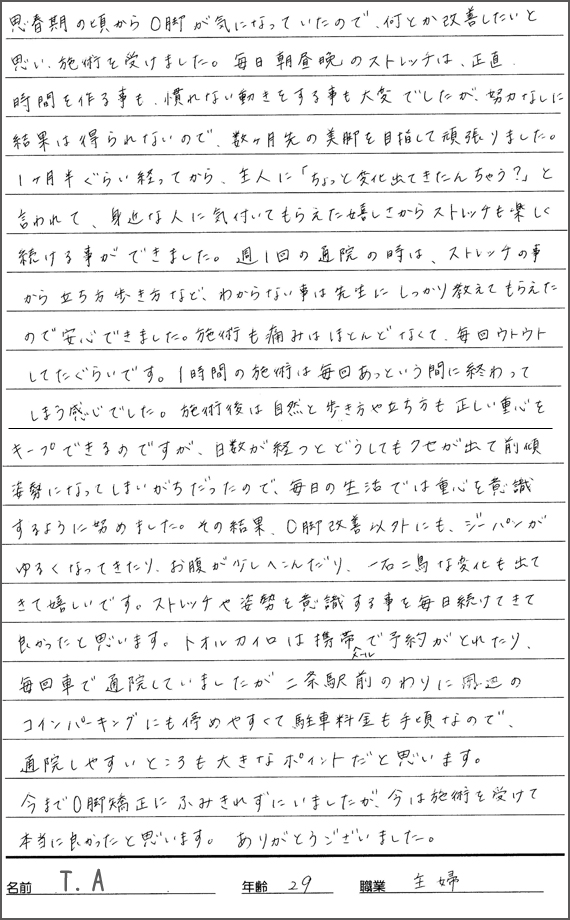 思春期の頃からO脚が気になっていたので、何とか改善したいと
思い、施術を受けました。毎日朝昼晩のストレッチは、正直、
時間を作る事も、慣れない動きをする事も大変でしたが、努力なしに
結果は得られないので、数ヶ月先の美脚を目指して頑張りました。
1ヶ月半ぐらい経ってから、主人に「ちょっと変化出てきたんちゃう?」と
言われて、身近な人に気付いてもらえた嬉しさからストレッチも楽しく
続ける事ができました。週1回の通院の時は、ストレッチの事
から立ち方歩き方など、わからない事は先生にしっかり教えてもらえた
ので安心できました。施術も痛みはほとんどなくて、毎回ウトウト
してたぐらいです。1時間の施術は毎回あっという間に終わって
しまう感じでした。施術後は自然と歩き方や立ち方も正しい重心を
キープできるのですが、日数が経つとどうしてもクセが出て前傾
姿勢になってしまいがちだったので、毎日の生活では重心を意識
するように努めました。その結果、O脚改善以外にも、ジーパンが
ゆるくなってきたり、お腹が少しへこんだり、一石二鳥な変化も出て
きて嬉しいです。ストレッチや姿勢を意識する事を毎日続けてきて
良かったと思います。トオルカイロは携帯メールで予約がとれたり、
毎回車で通院していましたが二条駅前のわりに周辺の
コインパーキングにも停めやすくて駐車料金も手頃なので、
通院しやすいところも大きなポイントだと思います。
今までO脚矯正にふみきれずにいましたが、今は施術を受けて
本当に良かったと思います。ありがとうございました。
名前 T.A 年齢 29 職業 主婦